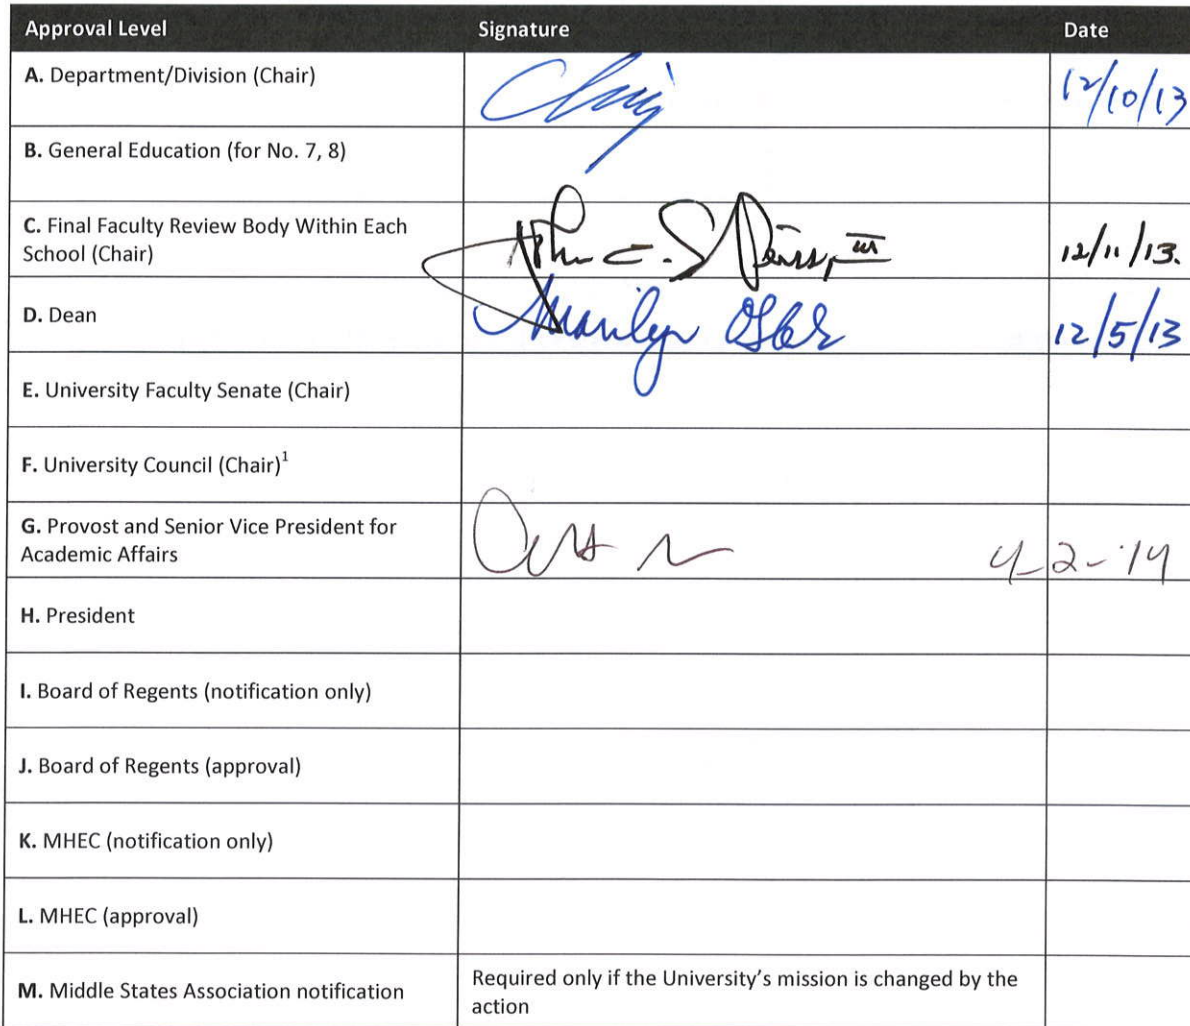 Approval Level Signature Date
A. Department/Division (Chair) 12/10/13
B. General Education (for No. 7, 8)
C. Final Faculty Review Body Within Each
School (Chair) John C. III 12/11/13.
D. Dean Marilyn 12/5/13
E. University Faculty Senate (Chair)
F. University Council (Chair)1
G. Provost and Senior Vice President for
Academic Affairs 4-2-14
H. President
I. Board of Regents (notification only)
J. Board of Regents (approval)
K. MHEC (notification only)
L. MHEC (approval)
M. Middle States Association notification Required only if the University's mission is changed by the
action